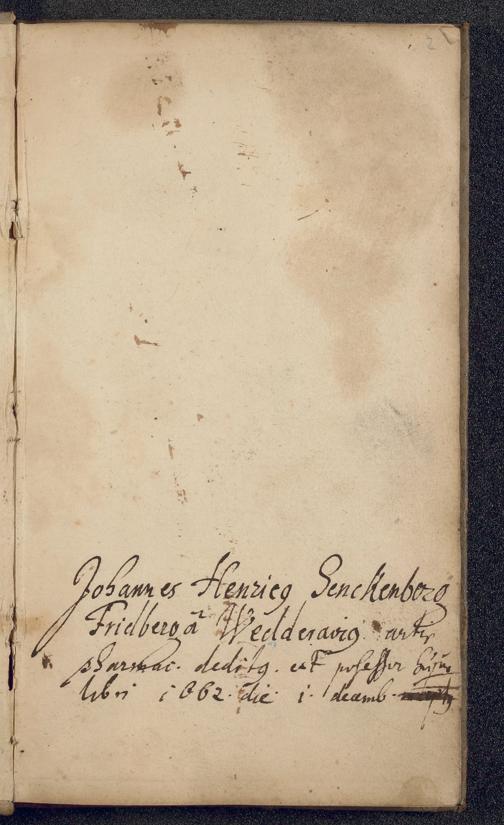 2
Johannes Henricg Senckenberg
Fridbergâ Wedderavig artis
pharmac. deditg. est possessor hujus
libri 1662 die 1 decemb.